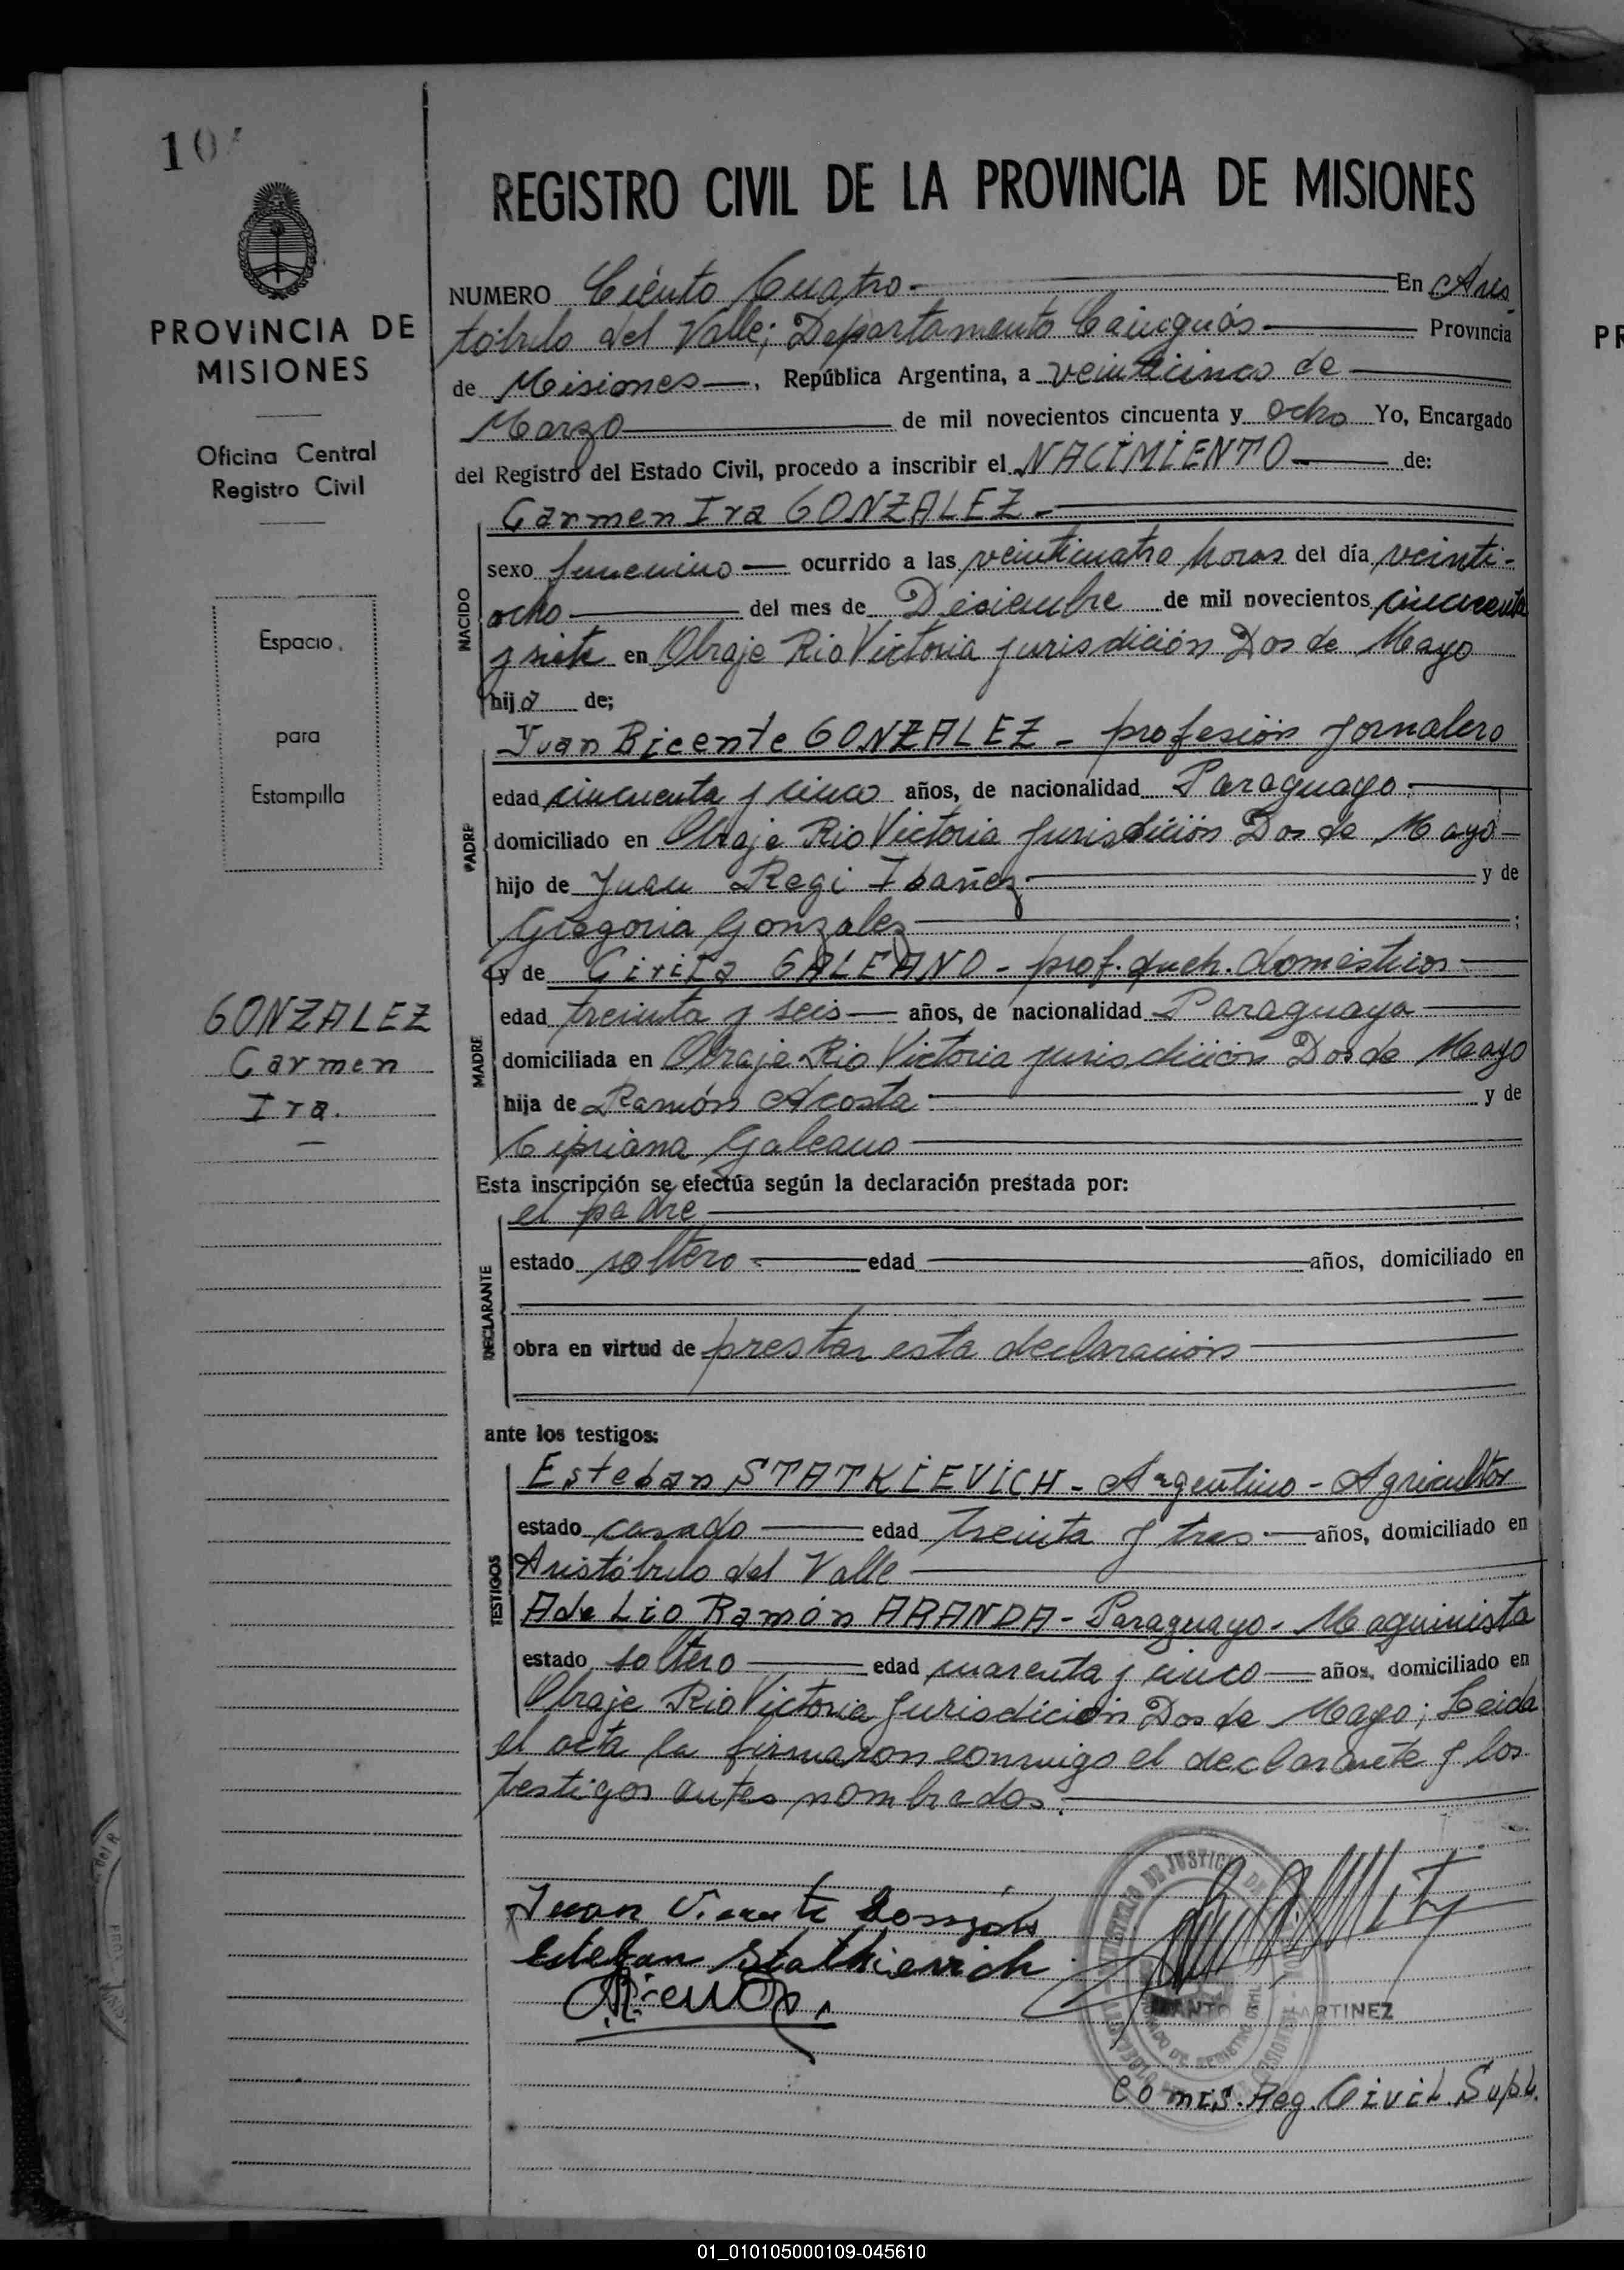 10
REGISTRO CIVIL DE LA PROVINCIA DE MISIONES
PROVINCIA DE
MISIONES
Oficina Central
Registro Civil
Espacio
para
Estampilla
GONZALEZ
Carmen
Ira.
NUMERO Ciento Cuatro.- En Aris
tóbulo del Valle; Departamento Cainguás Provincia
de Misiones, República Argentina, a veinticinco de
Marzo de mil novecientos cincuenta y ocho Yo, Encargado
del Registro del Estado Civil, procedo a inscribir el NACIMIENTO de:
Carmen Ira GONZALEZ.-
NACIDO
sexo femenino ocurrido a las veinticuatro horas del día veinti-
ocho del mes de Diciembre de mil novecientos cincuenta
y siete en Obraje Rio Victoria jurisdición Dos de Mayo
hija de;
Juan Bicente GONZALEZ - profesión Jornalero
PADRE
edad cincuenta y cinco años, de nacionalidad Paraguayo.
domiciliado en Obraje Rio Victoria Jurisdición Dos de Mayo
hijo de Juan Regi Ibañez y de
Gregoria Gonzalez ;
y de Cirila GALEANO - prof. queh. domésticos
MADRE
edad treinta y seis años, de nacionalidad Paraguaya
domiciliada en Obraje Rio Victoria jurisdición Dos de Mayo
hija de Ramón Acosta y de
Cipriana Galeano
Esta inscripción se efectúa según la declaración prestada por:
el padre
DECLARANTE
estado soltero edad años, domiciliado en
obra en virtud de prestar esta declaración
ante los testigos:
Esteban STATKIEVICH - Argentino - Agricultor
TESTIGOS
estado casado edad treinta y tres años, domiciliado en
Aristóbulo del Valle
Adelio Ramón ARANDA - Paraguayo - Maquinista
estado soltero edad cuarenta y cinco años, domiciliado en
Obraje Rio Victoria Jurisdición Dos de Mayo; Leida
el acta la firmaron conmigo el declarante y los
testigos antes nombrados.
Juan Vicente
Esteban Statkievich
MARTINEZ
Comis. Reg. Civil Supl.
01_010105000109-045610